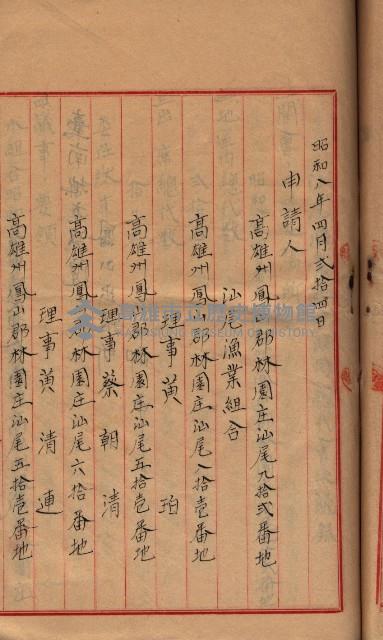 昭和八年四月弐拾四日
申請人
高雄州鳳山郡林園庄汕尾九拾弐番地
汕尾漁業組合
高雄州鳳山郡林園庄汕尾八拾壱番地
理事黄 珀
高雄州鳳山郡林園庄汕尾五拾壱番地
理事蔡朝清
高雄州鳳山郡林園庄汕尾六拾番地
理事黄清連
高雄州鳳山郡林園庄汕尾五拾壱番地
高雄市立歷史博物館